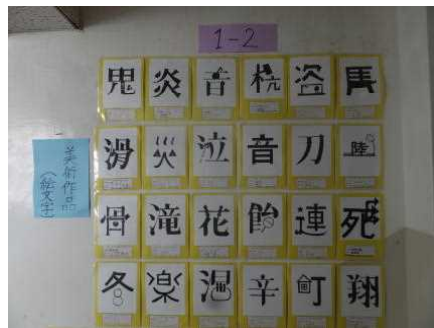 1-2
美術作品
(絵文字)
鬼 炎 音 盗 馬
滑 災 泣 音 刀 陸
骨 滝 花 飴 連 死
冬 楽 辛 町 翔